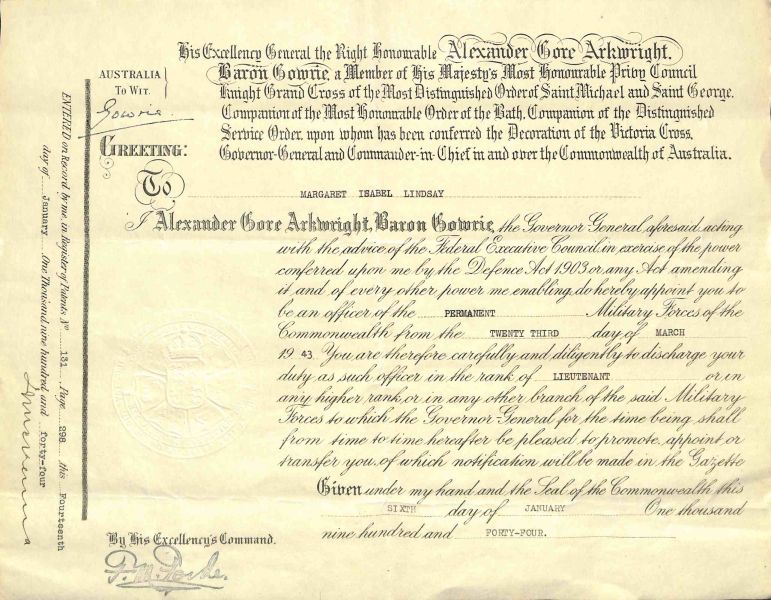 His Excellency General the Right Honourable Alexander Gore Arkwright,
Baron Gowrie, a Member of His Majesty's Most Honourable Privy Council
Knight Grand Cross of the Most Distinguished Order of Saint Michael and Saint George,
Companion of the Most Honourable Order of the Bath, Companion of the Distinguished
Service Order, upon whom has been conferred the Decoration of the Victoria Cross,
Governor-General and Commander-in-Chief in and over the Commonwealth of Australia.
AUSTRALIA
TO WIT.
Gowrie.
GREETING:
To MARGARET ISABEL LINDSAY
I Alexander Gore Arkwright, Baron Gowrie, the Governor General, aforesaid, acting
with the advice of the Federal Executive Council, in exercise of the power
conferred upon me by the Defence Act 1903 or any Act amending
it, and of every other power me enabling, do hereby appoint you to
be an officer of the PERMANENT Military Forces of the
Commonwealth from the TWENTY THIRD day of MARCH
19 43. You are therefore carefully and diligently to discharge your
duty as such officer in the rank of LIEUTENANT or in
any higher rank, or in any other branch of the said Military
Forces to which the Governor General for the time being shall
from time to time hereafter be pleased to promote, appoint or
transfer you, of which notification will be made in the Gazette
Given under my hand and the Seal of the Commonwealth this
SIXTH day of JANUARY One thousand
nine hundred and FORTY-FOUR.
By His Excellency's Command.
ENTERED on Record by me, in Register of Patents No 131 Page 298 this Fourteenth
day of January One Thousand nine hundred and forty-four